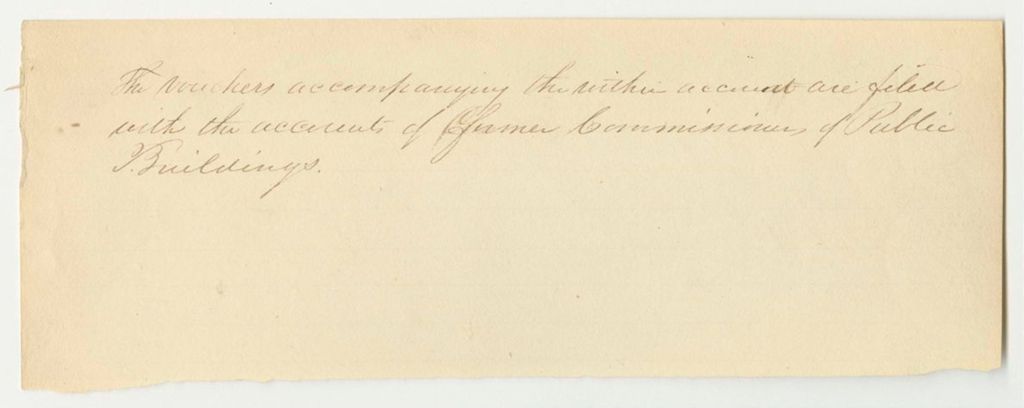 The vouchers accompanying the within account are filed
with the accounts of former Commissioners of Public
Buildings.